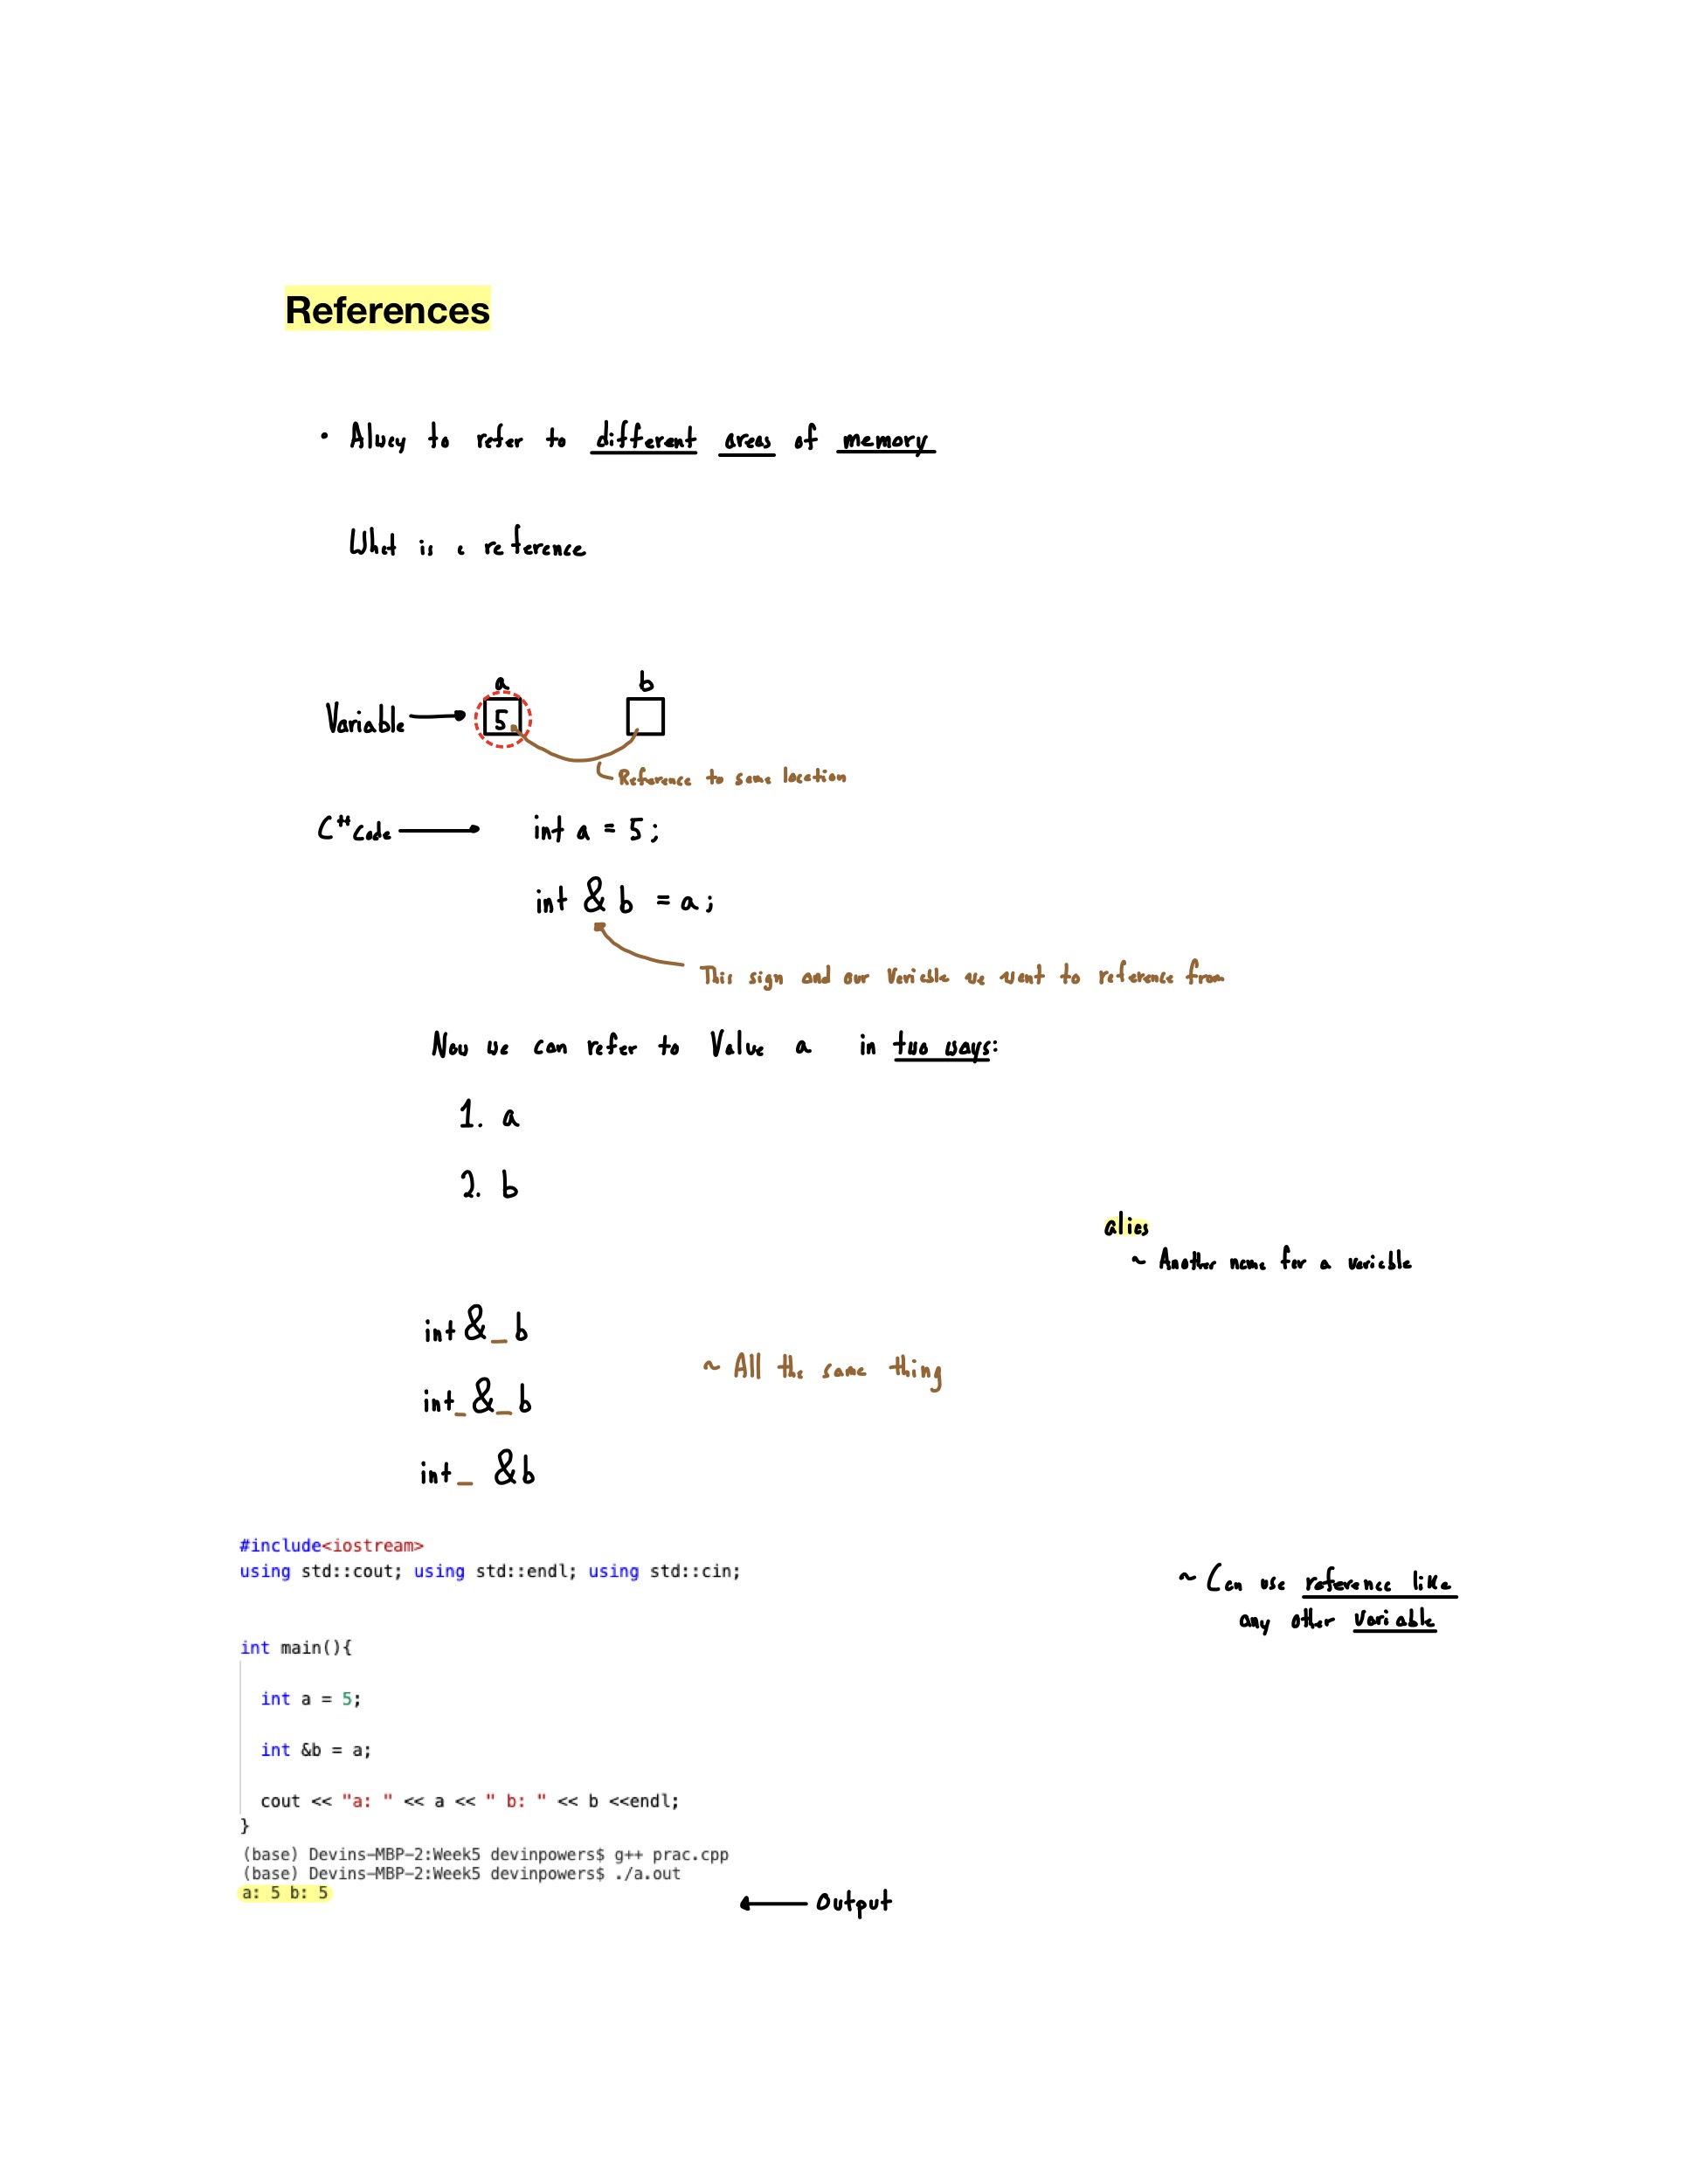 References
• A way to refer to different areas of memory
What is a reference
a b
Variable 5
Reference to same location
C++ Code int a = 5;
int & b = a;
This sign and our Variable we want to reference from
Now we can refer to Value a in two ways:
1. a
2. b
alias
~ Another name for a variable
int &_b
~ All the same thing
int_&_b
int_ &b
#include<iostream>
using std::cout; using std::endl; using std::cin;
~ Can use reference like
any other variable
int main(){
int a = 5;
int &b = a;
cout << "a: " << a << " b: " << b <<endl;
}
(base) Devins-MBP-2:Week5 devinpowers$ g++ prac.cpp
(base) Devins-MBP-2:Week5 devinpowers$ ./a.out
a: 5 b: 5
Output